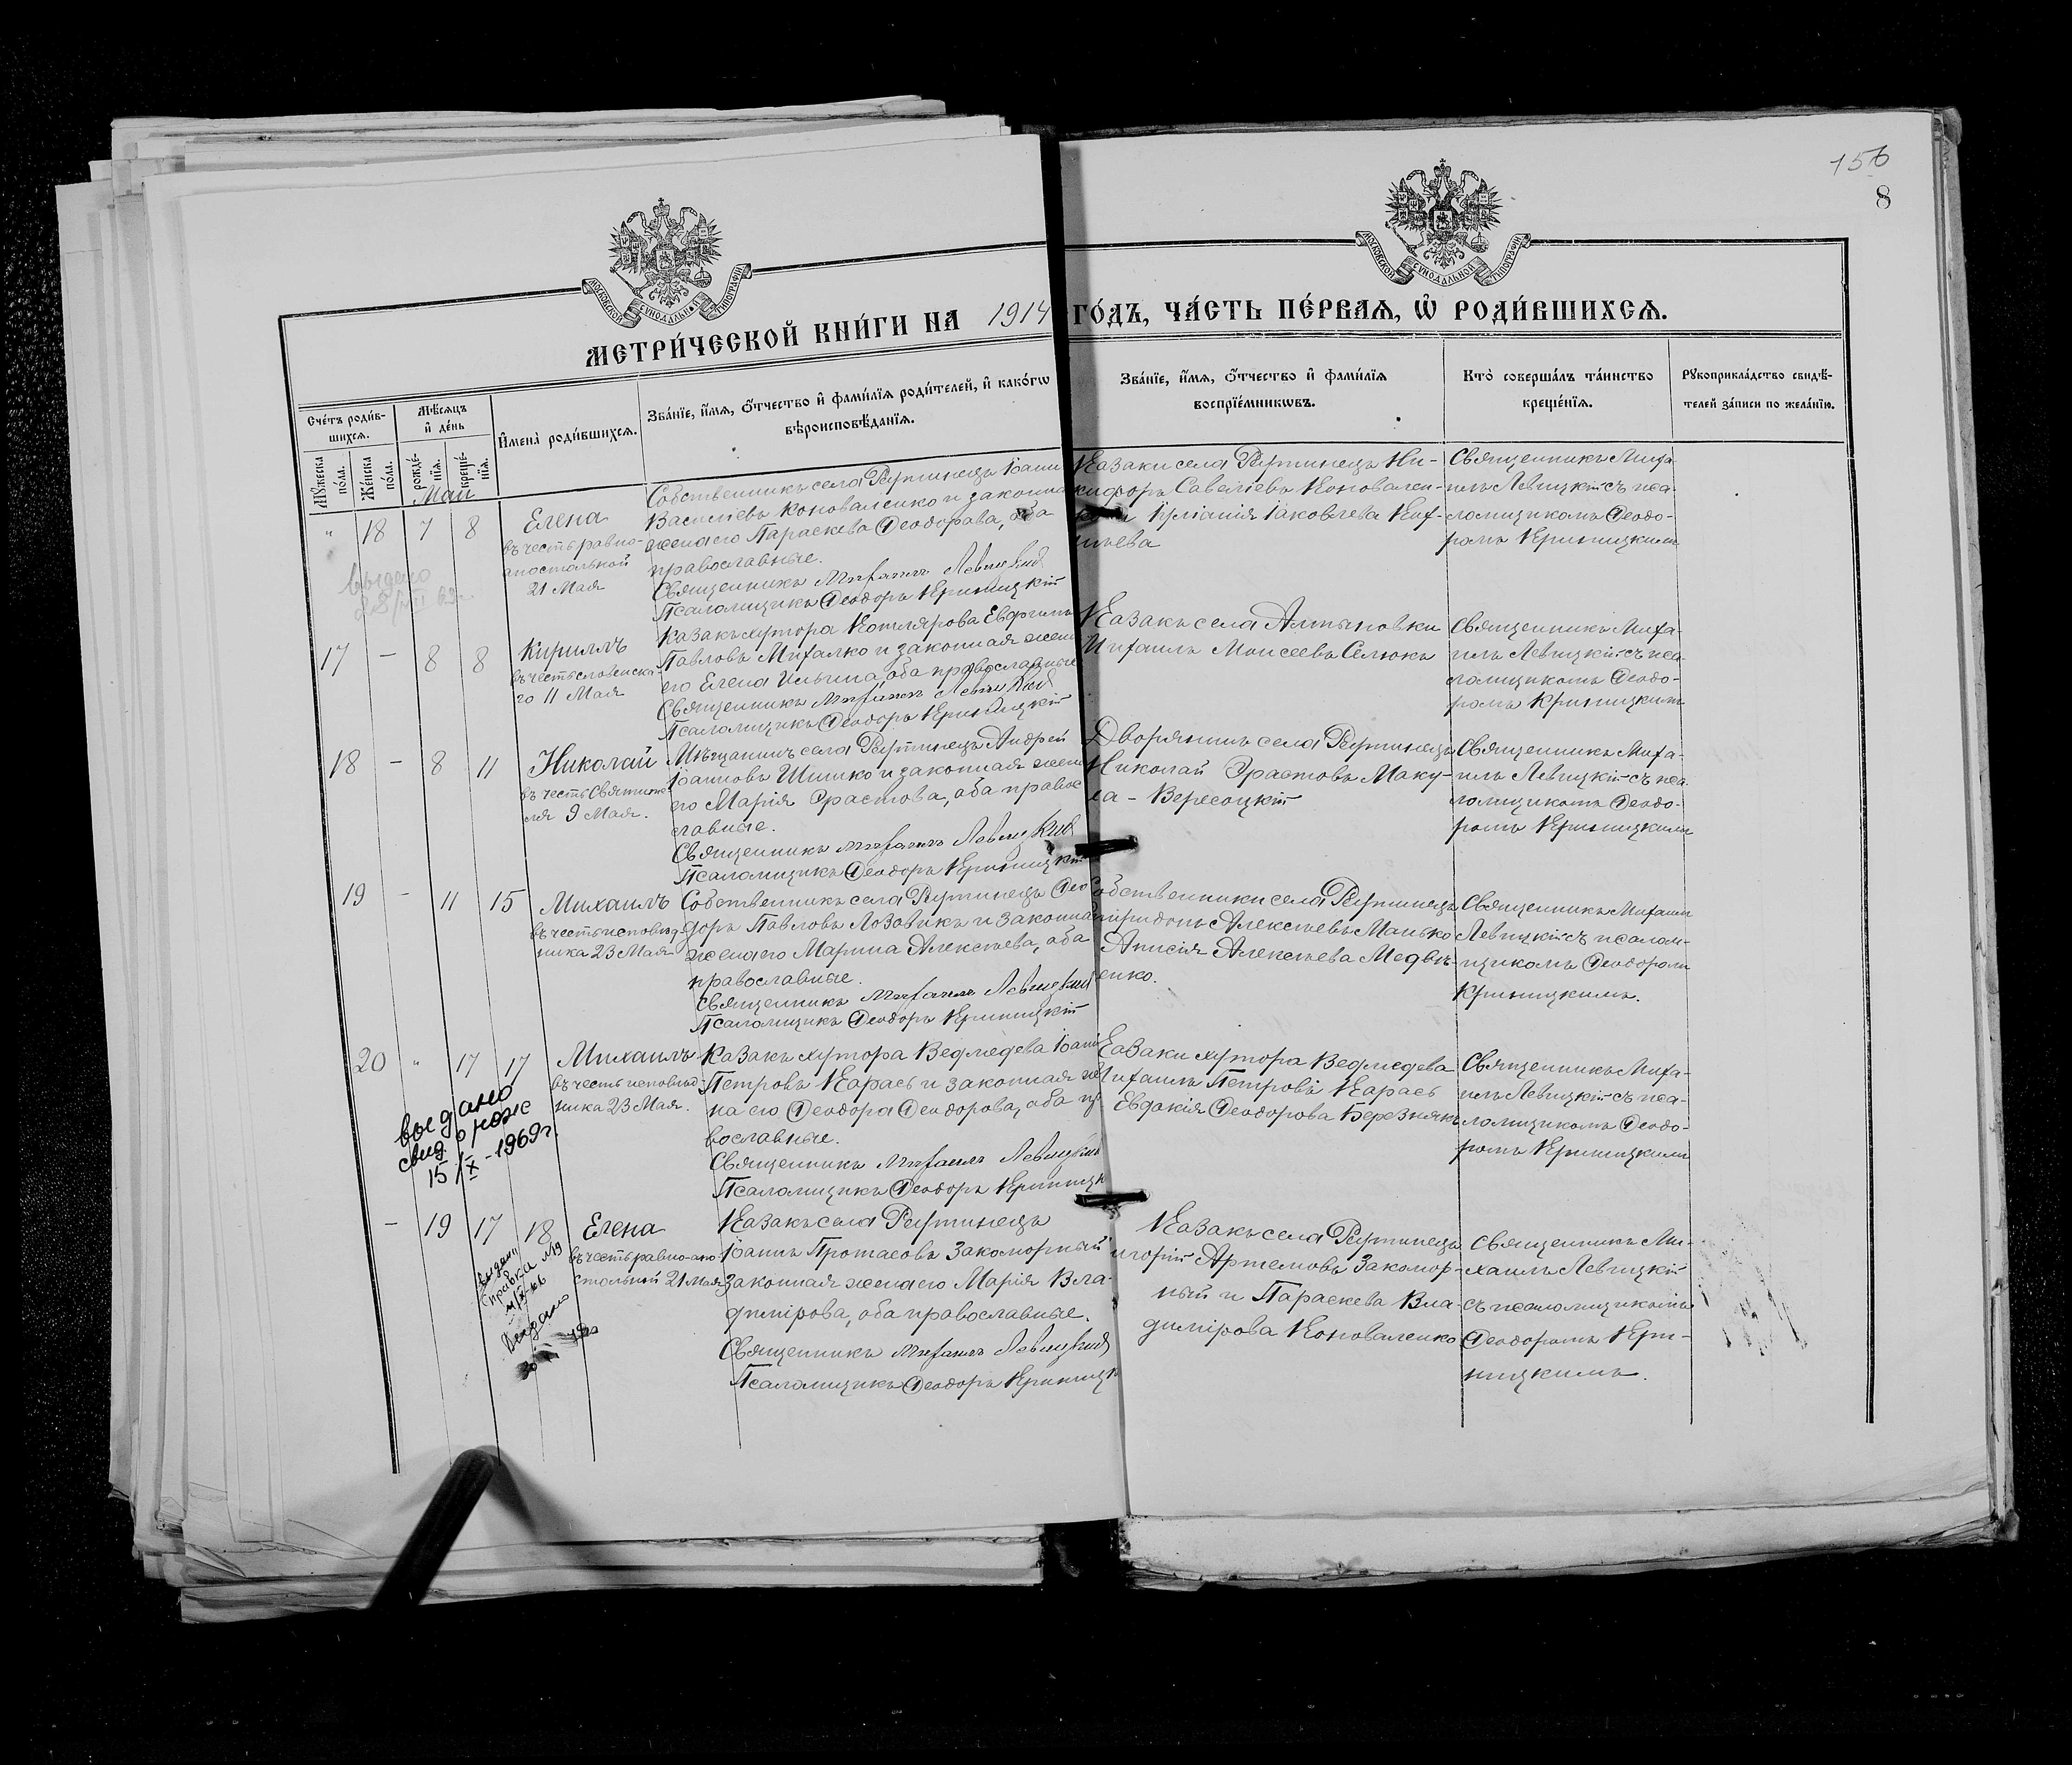 156
8
МОСКОВСКОЙ СѴНОДАЛЬНОЙ ТИПОГРАФІИ
МОСКОВСКОЙ СѴНОДАЛЬНОЙ ТИПОГРАФІИ
МЕТРИ́ЧЕСКОЙ КНИ́ГИ НА 1914 ГО́ДЪ, ЧА́СТЬ ПЕ́РВАѦ, Ѡ҆ РОДИ́ВШИХСѦ.
Сче́тъ роди́в-
шихсѧ.
Мꙋ́жеска
по́ла.
Же́нска
по́ла.
Мѣ́сѧцъ
и҆ де́нь
рожде́-
нїѧ.
креще́-
нїѧ.
И҆мена̀ роди́вшихсѧ.
Зва́нїе, и҆́мѧ, ѻ҆́тчество и҆ фами́лїѧ роди́телей, и҆ како́гѡ
вѣроисповѣ́данїѧ.
Зва́нїе, и҆́мѧ, ѻ҆́тчество и҆ фами́лїѧ
воспрїе́мникѡвъ.
Кто̀ соверша́лъ та́инство
креще́нїѧ.
Рꙋкоприкла́дство свидѣ́-
телей за́писи по жела́нїю.
Май
" 18 7 8
Елена
въ честь равно-
апостольной
21 Мая
выдано
Собственникъ села Рутинецъ Іоаннъ
Васильевъ Коноваленко и законная
жена его Параскева Ѳеодорова, оба
православные.
Священникъ Михаилъ Левицкій
Псаломщикъ Ѳеодоръ Криницкій
Казаки села Рутинецъ Ни-
кифоръ Савельевъ Коновален-
Іуліанія Іаковлева
Священникъ Миха-
илъ Левицкій съ пса-
ломщикомъ Ѳеодо-
ромъ Криницкимъ
17 – 8 8
Кириллъ
въ честь словенска-
го 11 Мая
Казакъ хутора Котлярова Евфимъ
Павловъ Михалко и законная жена
его Елена Ильина, оба православные
Священникъ Михаилъ Левицкій
Псаломщикъ Ѳеодоръ Криницкій
Казакъ села Алтыновки
Михаилъ Моисеевъ Селюкъ
Священникъ Миха-
илъ Левицкій съ пса-
ломщикомъ Ѳеодо-
ромъ Криницкимъ
18 – 8 11
Николай
въ честь Святите-
ля 9 Мая.
Мѣщанинъ села Рутинецъ Андрей
Іоанновъ Шишко и законная жена
его Марія Эрастова, оба право
славные.
Священникъ Михаилъ Левицкій
Псаломщикъ Ѳеодоръ Криницкій
Дворянинъ села Рутинецъ
Николай Эрастовъ Маку-
ха - Вересоцкій
Священникъ Миха-
илъ Левицкій съ пса-
ломщикомъ Ѳеодо-
ромъ Криницкимъ
19 – 11 15
Михаилъ
въ честь исповѣд-
ника 23 Мая
Собственникъ села Рутинецъ Ѳео
доръ Павловъ Лозовикъ и законная
жена его Марина Алексѣева, оба
православные.
Священникъ Михаилъ Левицкій
Псаломщикъ Ѳеодоръ Криницкій
Собственники села Рутинецъ
Спиридонъ Алексѣевъ Манько
Анисія Алексѣева Медвѣ-
енко.
Священникъ Михаилъ
Левицкій съ псалом-
щикомъ Ѳеодоромъ
Криницкимъ.
20 " 17 17
Михаилъ
въ честь исповѣд-
ника 23 Мая.
выдано
свид. о рож
15/IX-1969г.
Казакъ хутора Ведмедева Іоаннъ
Петровъ Карась и законная же
на его Ѳеодора Ѳеодорова, оба пра
вославные.
Священникъ Михаилъ Левицкій
Псаломщикъ Ѳеодоръ Криницк
Казаки хутора Ведмедева
Михаилъ Петровъ Карась
Евдокія Ѳеодорова Березнякъ
Священникъ Миха-
илъ Левицкій съ пса-
ломщикомъ Ѳеодо-
ромъ Криницкимъ
– 19 17 18
Елена
въ честь равно-апо-
стольной 21 Мая
Выдано
Казакъ села Рутинецъ
Іоаннъ Протасовъ Закоморный
законная жена его Марія Вла-
димірова, оба православные.
Священникъ Михаилъ Левицкій
Псаломщикъ Ѳеодоръ Криницк
Казакъ села Рутинецъ
игорій Артемовъ Закомор-
ный и Параскева Вла-
димірова Коноваленко
Священникъ Ми-
хаилъ Левицкій
съ псаломщикомъ
Ѳеодоромъ Кри-
ницкимъ.